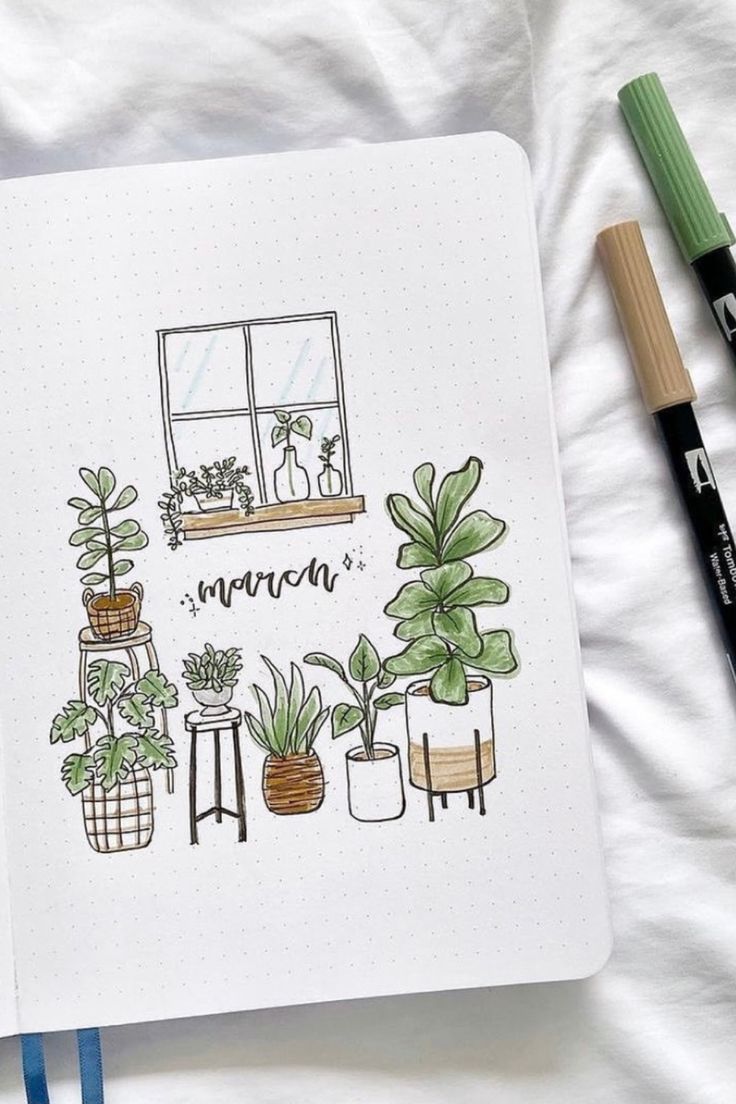 march
Tombow
Water-Based